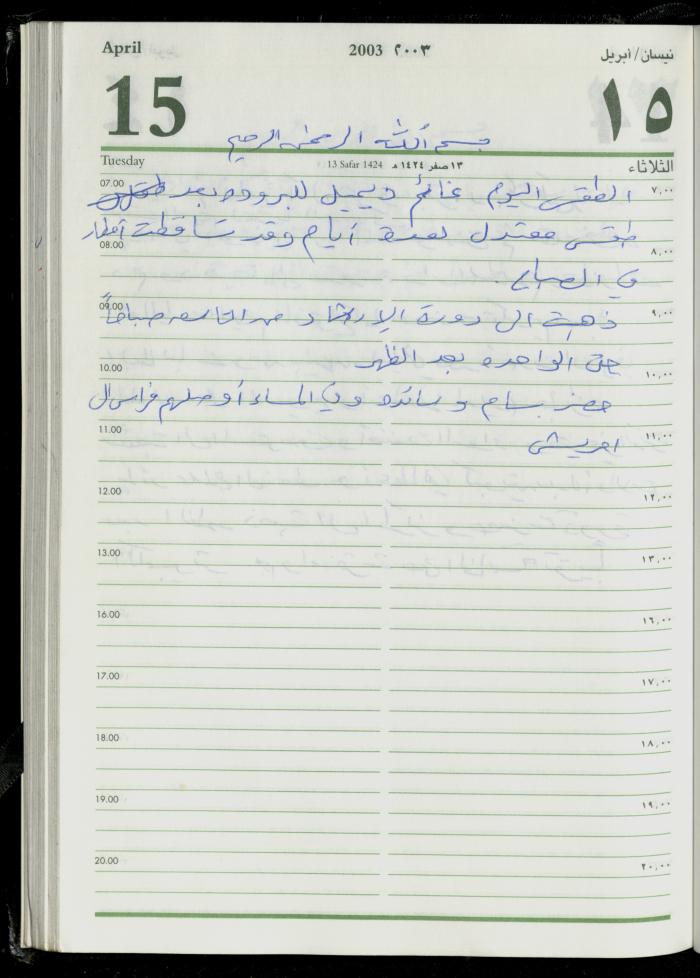 April 2003 ٢٠٠٣ نيسان/أبريل
15 ١٥
بسم الله الرحمن الرحيم
Tuesday 13 Safar 1424 ١٣ صفر ١٤٢٤ هـ الثلاثاء
07.00 الطقس اليوم غائم ويميل للبروده بعد ٧,٠٠
طقس معتدل لعدة أيام وقد تساقطت أمطار
08.00 ٨,٠٠
في الصباح.
09.00 ذهبت الى دورة الإرشاد من التاسعه صباحاً ٩,٠٠
حتى الواحده بعد الظهر
10.00 ١٠,٠٠
حضر بسام و سائده وفي المساء أوصلهم فراس الى
11.00 ١١,٠٠
12.00 ١٢,٠٠
13.00 ١٣,٠٠
16.00 ١٦,٠٠
17.00 ١٧,٠٠
18.00 ١٨,٠٠
19.00 ١٩,٠٠
20.00 ٢٠,٠٠